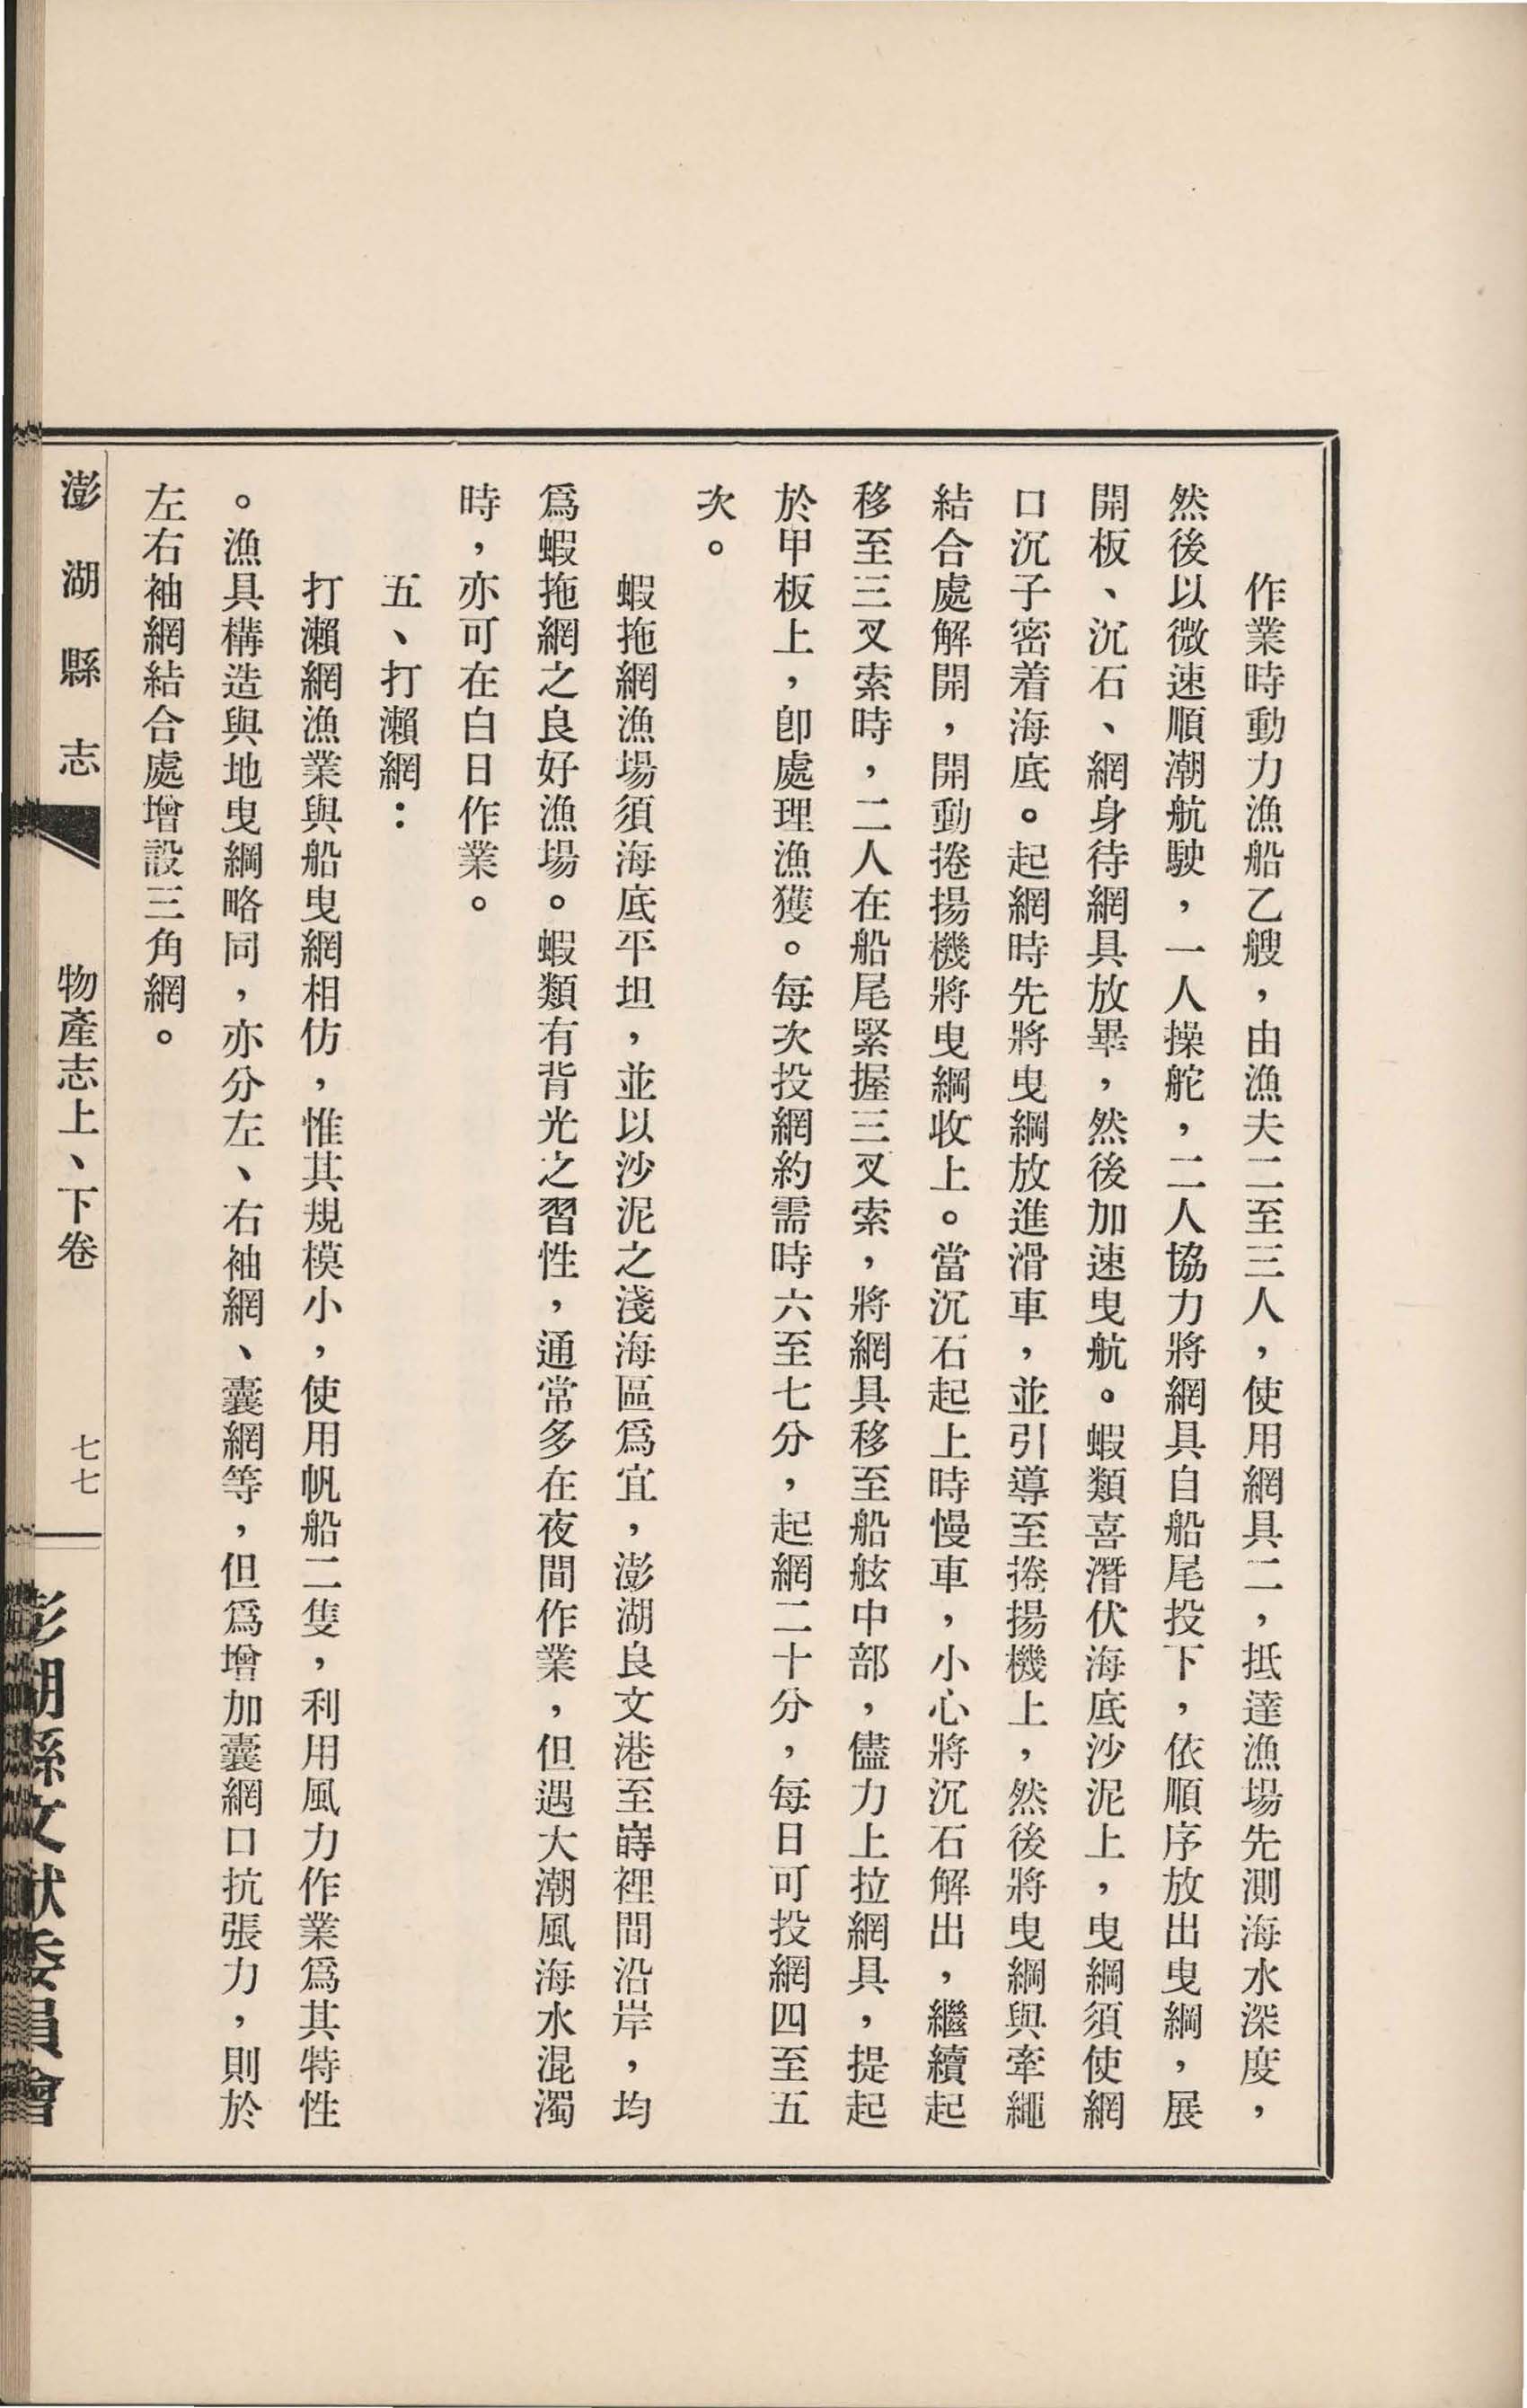 作業時動力漁船乙艘，由漁夫二至三人，使用網具二，抵達漁場先測海水深度，
然後以微速順潮航駛，一人操舵，二人協力將網具自船尾投下，依順序放出曳綱，展
開板、沉石、網身待網具放畢，然後加速曳航。蝦類喜潛伏海底沙泥上，曳綱須使網
口沉子密着海底。起網時先將曳綱放進滑車，並引導至捲揚機上，然後將曳綱與牽繩
結合處解開，開動捲揚機將曳綱收上。當沉石起上時慢車，小心將沉石解出，繼續起
移至三叉索時，二人在船尾緊握三叉索，將網具移至船舷中部，儘力上拉網具，提起
於甲板上，卽處理漁獲。每次投網約需時六至七分，起網二十分，每日可投網四至五
次。
蝦拖網漁場須海底平坦，並以沙泥之淺海區爲宜，澎湖良文港至嵵裡間沿岸，均
爲蝦拖網之良好漁場。蝦類有背光之習性，通常多在夜間作業，但遇大潮風海水混濁
時，亦可在白日作業。
五、打瀨網：
打瀨網漁業與船曳網相仿，惟其規模小，使用帆船二隻，利用風力作業爲其特性
。漁具構造與地曳網略同，亦分左、右袖網、囊網等，但爲增加囊網口抗張力，則於
左右袖網結合處增設三角網。
澎湖縣志
物產志上、下卷
七七
澎湖縣文獻委員會